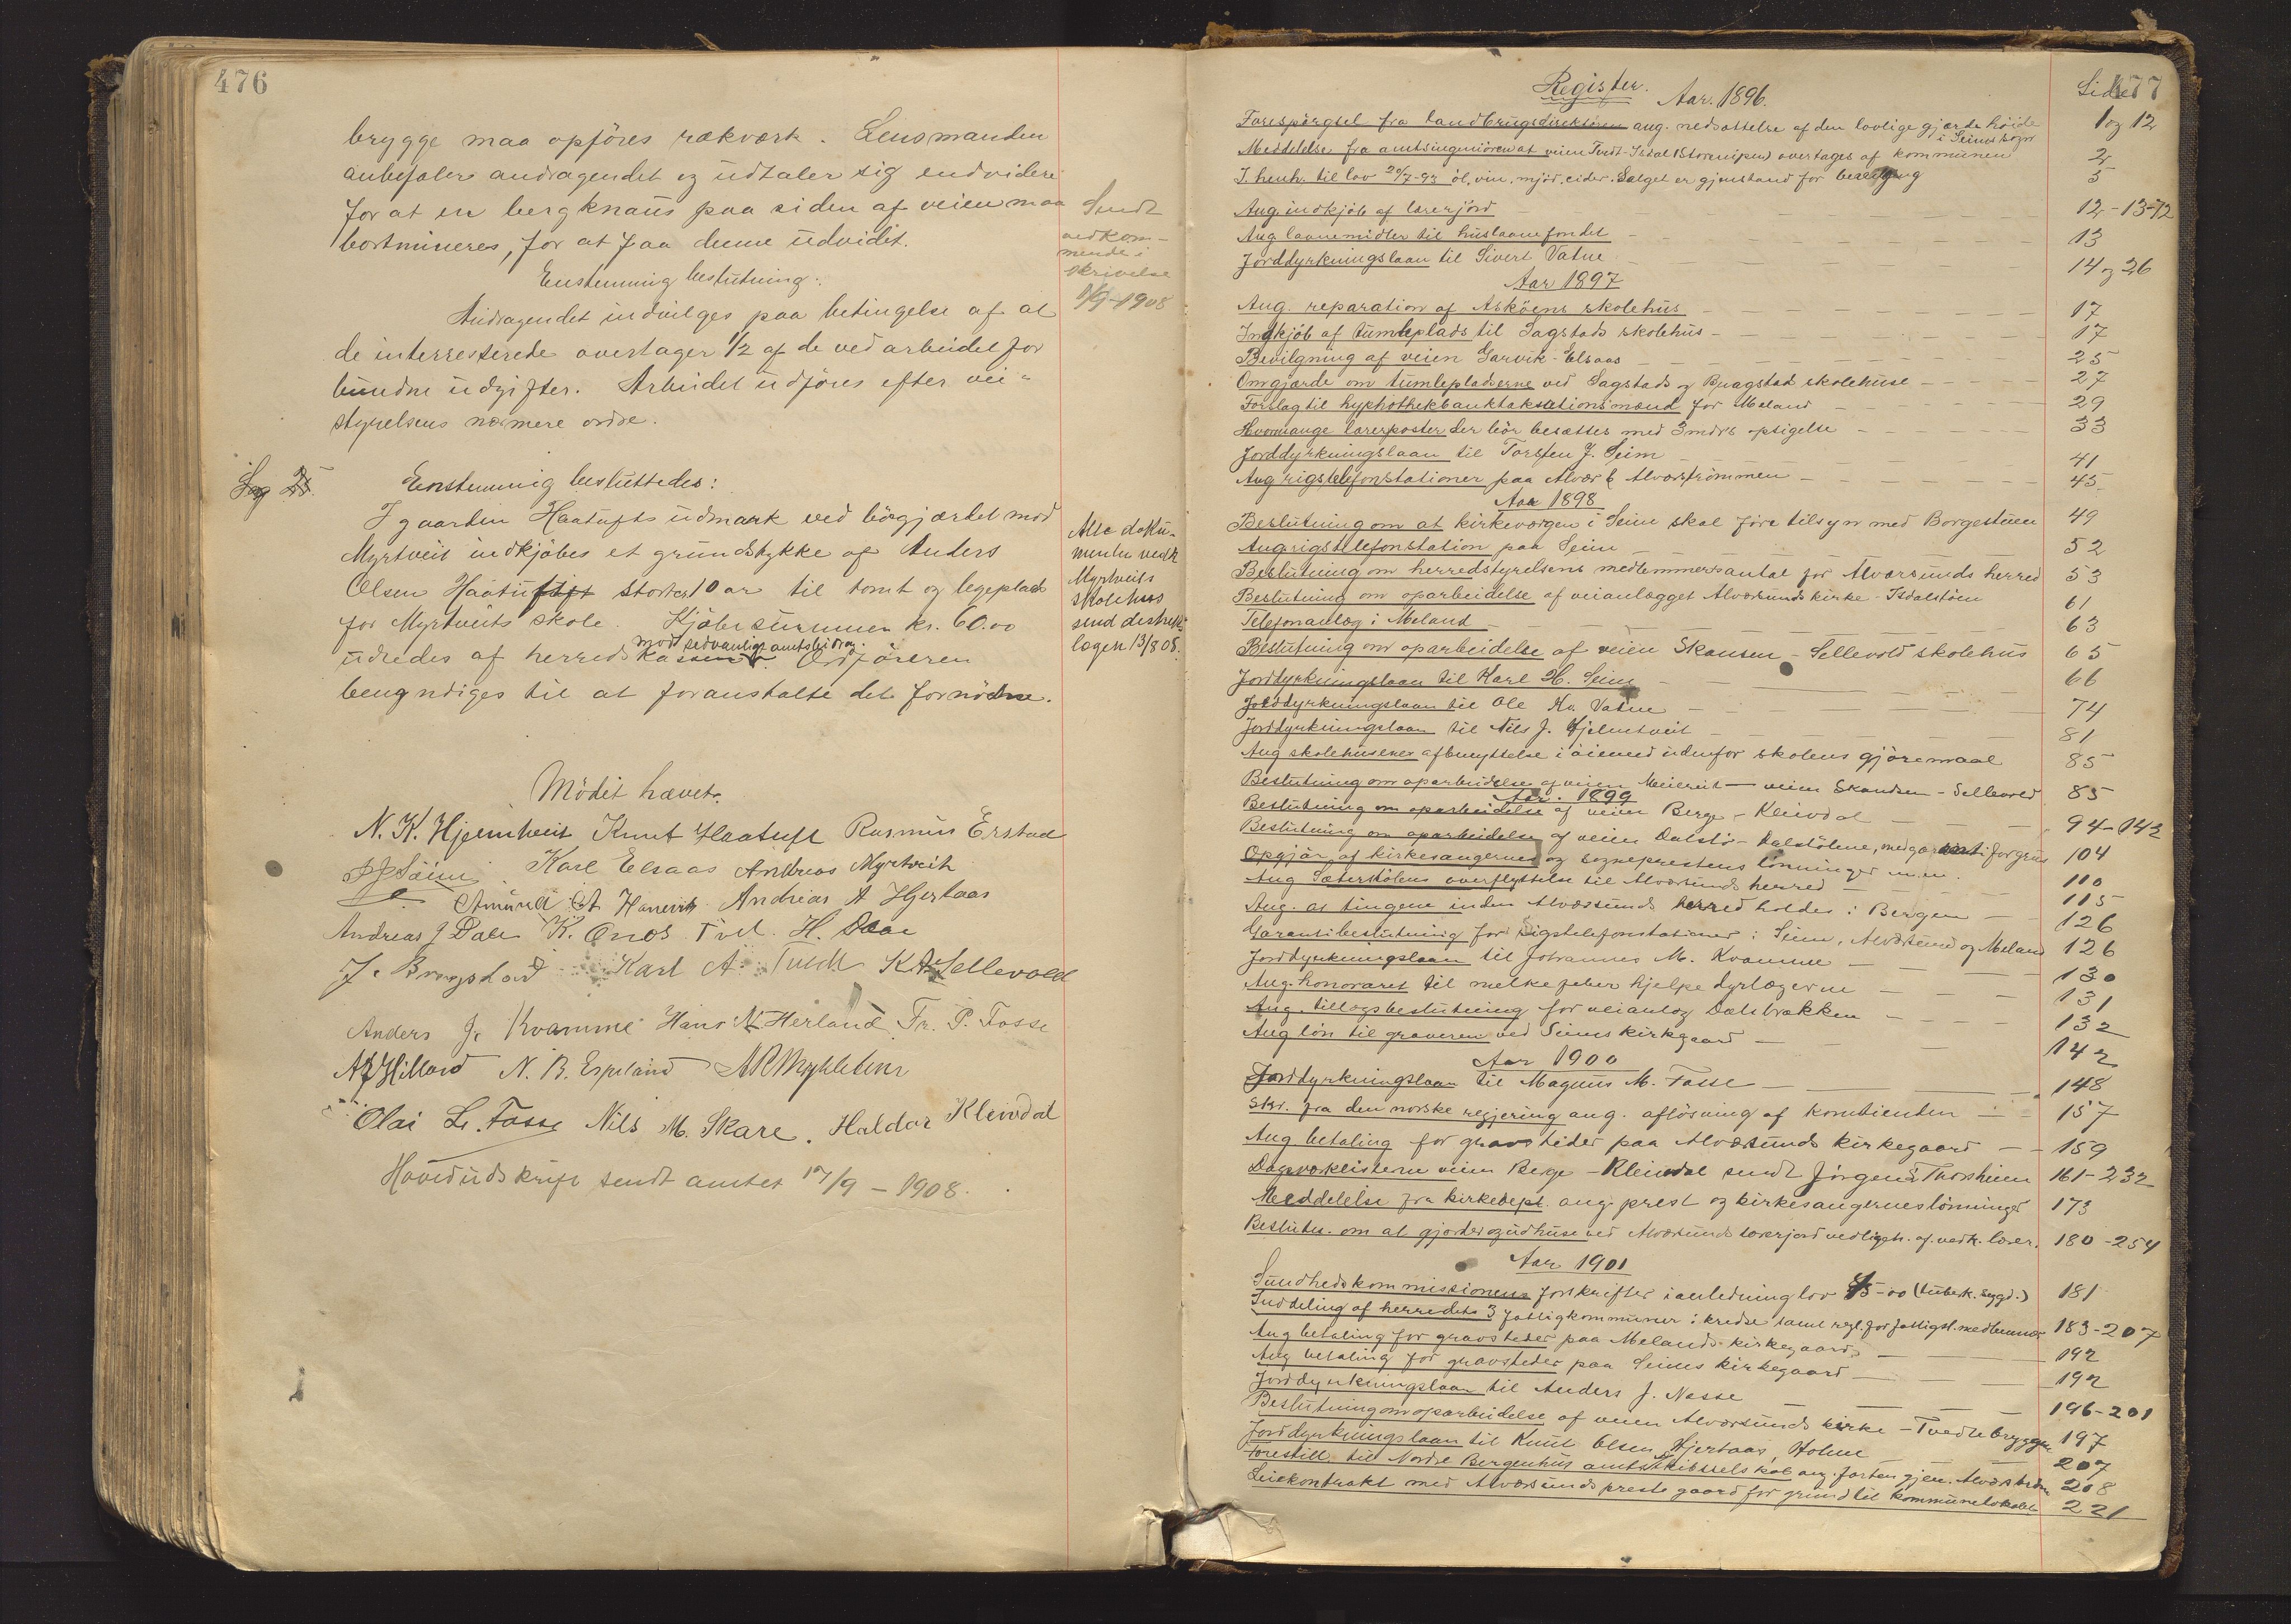 476
brygge maa opföres rækværk. Lensmanden
anbefaler andragendet og udtaler sig endvidere
for at en bergknaus paa siden af veien maa
bortmineres, for at faa denne udvidet.
Sendt
vedkom-
mende i
skrivelse
1/9-1908
Enstemmig beslutning:
Andragendet indvilges paa betingelse af at
de interresserede overtager 1/2 af de ved arbeidet for
bundne udgifter. Arbeidet udföres efter vei-
styrelsens nærmere ordre.
Sag 25.
Enstemmig besluttedes:
I gaarden Haatufts udmark ved bögjærdet mod
Myrtveit indkjöbes et grundstykke af Anders
Olsen Haatuft stort 10 ar til tomt og legeplads
for Myrtveits skole. Kjöbesummen kr. 60.00
mod sedvanlige amtsbidrag.
udredes af herredskassen. Ordföreren
bemyndiges til at foranstalte det fornödne.
Alle doku-
menter vedk
Myrtveits
skolehus
send distrikts
lægen 13/8 08.
Mödet hævet.
N. K. Hjelmtveit Knut Haatuft Rasmus Erstad
Karl Elsaas Andreas Myrtveit
Amund A Hanevik Andreas A Hjertaas
Andreas J Dale K. Ones Tvet. H. Daae
J. Bragstad Karl A. Tvedt K A Sellevold
Anders J. Kvamme Hans N Herland Fr. P. Fosse
N. B. Espeland
Olai L. Fosse Nils M. Skare. Haldor Kleivdal
Hovedudskrift sendt amtet 17/9 - 1908.
477
Register. Aar. 1896. Side
Forespörgsel fra landbrugsdirektören ang. nedsættelse af den lovlige gjærde höide i Seims sogn 1 og 12
Meddelelse fra amtsingeniören at veien Tvedt-Isdal overtages af kommunen 2
I. henh. til lov 20/7-93 öl, vin, mjöd, cider. Salget er gjenstand for bevilgning 5
Ang. indkjöb af lærerjord 12-13-72
Ang. laanemidler til huslaanefondet 13
Jorddyrkningslaan til Sivert Vatne 14 og 26
Aar 1897
Ang. reparation af Asköens skolehus 17
Indkjöb af tumleplads til Sagstads skolehus 17
Bevilgning af veien Garvik-Elsaas 25
Omgjærde om tumlepladserne ved Sagstads og Bragstad skolehuse 27
Forslag til hyphothekbanktakstationsmænd for Meland 29
Hvormange lærerposter der bör besættes med 3 mdrs opsigelse 33
Jorddyrkningslaan til Torsten J. Seim 41
Ang rigstelefonstationer paa Alvær & Alverströmmen 45
Aar 1898
Beslutning om at kirkeværgen i Seim skal före tilsyn med Borgestuen 49
Ang. rigstelefonstation paa Seim 52
Beslutning om herredstyrelsens medlemmersantal for Alversunds herred 53
Beslutning om oparbeidelse af veianlægget Alversunds kirke - Isdalstöen 61
Telefonanlæg i Meland 63
Beslutning om oparbeidelse af veien Skansen - Sellevold skolehus 65
Jorddyrkningslaan til Karl H. Seim 66
Jorddyrkningslaan til Ole Kn. Vatne 74
Jorddyrkningslaan til Nils J. Hjelmtveit 81
Ang skolehusenes afbenyttelse i öiemed udenfor skolens gjöremaal 85
Beslutning om oparbeidelse af veien Meieriet - veien Skandsen - Sellevold 85
Aar. 1899
Beslutning om oparbeidelse af veien Berge - Kleivdal 94-142
Beslutning om oparbeidelse af veien Dalstö - Dalstölene, med garanti for grus 104
Opgjör af kirkesangernes og sogneprestens lönninger m.m. 110
Ang Sæterstölens overflyttelse til Alversunds herred 115
Ang. at tingene inden Alversunds herred holdes i Bergen 126
Garantibeslutning for rigstelefonstationer i Seim, Alversund og Meland 126
Jorddyrkningslaan til Johannes M. Kvamme 130
Ang. honoraret til melkefeber hjelpe dyrlægerne 131
Ang. tillægsbeslutning for veianlæg Dalsbrekken 132
Ang lön til graveren ved Seims kirkgaard 142
Aar 1900
Jorddyrkningslaan til Magnus M. Fosse 148
Skr. fra den norske regjering ang. aflösning af korntienden 157
Ang betaling for gravsteder paa Alversunds kirkegaard 159
Dagsværklisterne veien Berge - Kleivdal sendt Jörgen Thorsheim 161-232
Meddelelse fra kirkedept. ang. prest og kirkesangerneslönninger 173
Beslutn. om at gjærder og udhuse ved Alversunds lærerjord vedligeh. af vedk. lærer. 180-254
Aar 1901
Sundhedskommissionens forskrifter i anledning lov 8/5-00 (tuberk. sygd.) 181
Inddeling af herredets 3 fattigkommuner i kredse samt regl. for fattigst. medlemmer 183-207
Ang betaling for gravsteder paa Melands kirkegaard 192
Ang betaling for gravsteder paa Seims kirkegaard 192
Jorddyrkningslaan til Anders J. Nesse 196-201
Beslutning om oparbeidelse af veien Alversunds kirke - Tvedtebryggen 197
Jorddyrkningslaan til Knut Olsen Hjertaas, Holme 207
Forestill. til Nordre Bergenhus amts Dampskibsselskab ang. farten gjen. Alverström 208
Leiekontrakt med Alversunds prestegaard for grund til kommunelokalet 221